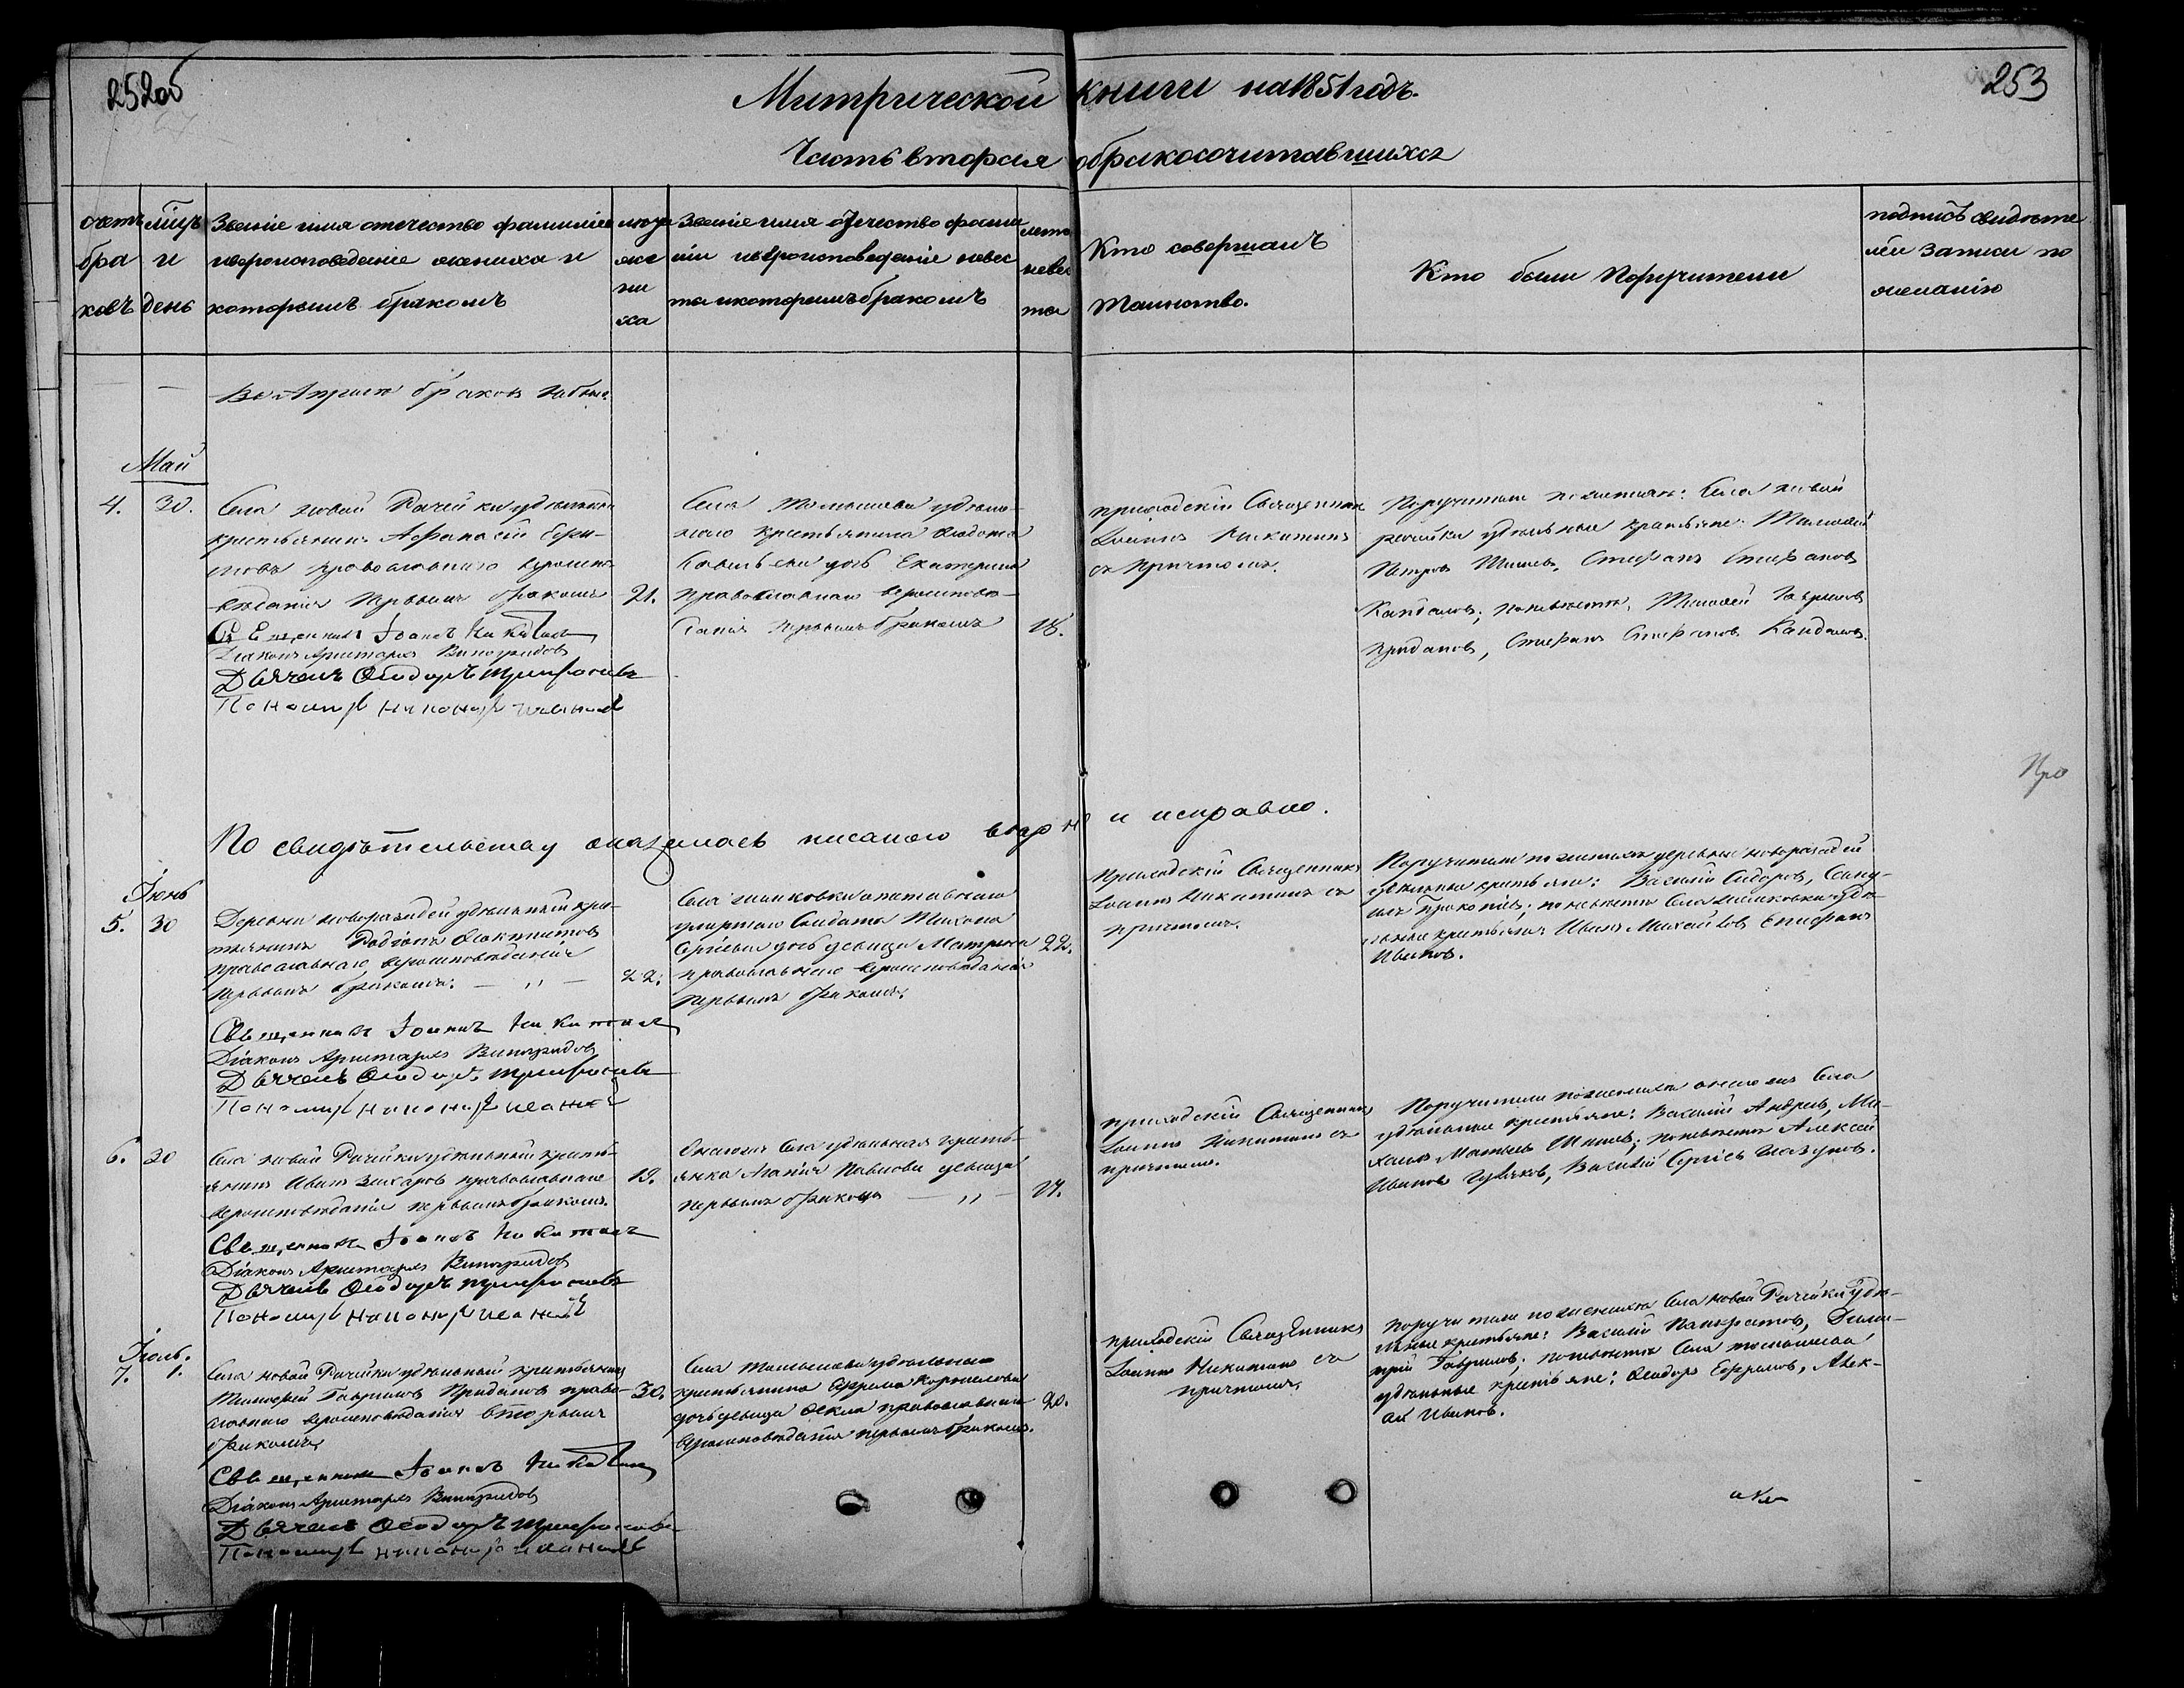 252об
253
Митрической книги на 1851 годъ.
Часть вторая о бракосочитавшихся
счетъ браковъ
мѣцъ и день
Званіе имя отечество фамилія
и вѣроисповеданіе жениха и
которымъ бракомъ
лѣта жениха
Званіе имя отечество фами
лія и вѣроисповеданіе невес
та и которымъ бракомъ
лѣта невеста
Кто совершалъ
Таинство.
Кто были Поручители
подпись свидѣте
лей записи по
желанію
Во Апрелѣ браковъ небыло.
Май
4. 30.
Села новой Рачейки удѣльный
крестьянинъ Афанасій
православнаго вѣроиспо-
вѣданія первымъ бракомъ
21.
Священникъ Іоаннъ Никитинъ
Діаконъ Аристархъ Виноградовъ
Дьячекъ Ѳеодоръ Трифоновъ
Пономарь Никаноръ
Села удѣль-
наго крестьянина Ѳедота
дочь Екатерина
православнаго вѣроисповѣ-
данія первымъ бракомъ
18.
приходскій Священникъ
Іоаннъ Никитинъ
съ Причтомъ.
Поручители по женихѣ: Села новой
рачейки удѣльные крестьяне: Тимофей
Петровъ Стефанъ Стефановъ
Кандаловъ; по невѣстѣ, Тимофей Гавриловъ
Придановъ, Стефанъ Стефановъ Кандаловъ.
По свидѣтельству оказалось писаною вѣрно и исправно.
Про
Іюнь
5. 30
Деревни удѣльный кре-
стьянинъ Родіонъ
православнаго вѣроисповѣданія
первымъ бракомъ. — „ —
22.
Священникъ Іоаннъ Никитинъ
Діаконъ Аристархъ Виноградовъ
Дьячекъ Ѳеодоръ Трифоновъ
Пономарь Никаноръ
Села
умершаго Солдата Тихона
Сергіева дочь девица Матрена
православнаго вѣроисповѣданія
первымъ бракомъ.
22.
приходскій Священникъ
Іоаннъ Никитинъ съ
причтомъ.
Поручители по женихѣ деревни
удѣльные крестьяне: Василій Сидоровъ,
Прокопіевъ; по невѣстѣ Села удѣ-
льные крестьяне Иванъ Михайловъ Епифанъ
Ивановъ.
6. 30
Села новой Рачейки удѣльный кресть-
янинъ Иванъ Захаровъ православнаго
вѣроисповѣданія первымъ бракомъ.
19.
Священникъ Іоаннъ Никитинъ
Діаконъ Аристархъ Виноградовъ
Дьячекъ Ѳеодоръ Трифоновъ
Пономарь Никаноръ
Онагожъ Села удѣльная кресть-
янка Павлова девица
первымъ бракомъ — „ —
17.
приходскій Священникъ
Іоаннъ Никитинъ съ
причтомъ.
Поручители по женихѣ онагожъ Села
удѣльные крестьяне: Василій Андреевъ, Ми-
хаилъ Матвеевъ по невѣстѣ Алексей
Ивановъ Василій Сергіевъ
Іюль.
7. 1.
Села новой Рачейки удѣльный крестьянинъ
Тимофей Гавриловъ Придановъ право-
славнаго вѣроисповѣданія вторымъ
бракомъ
30.
Священникъ Іоаннъ Никитинъ
Діаконъ Аристархъ Виноградовъ
Дьячекъ Ѳеодоръ Трифоновъ
Пономарь Никаноръ
Села удѣльнаго
крестьянина Ефрема Корнилова
дочь девица Ѳекла православнаго
вѣроисповѣданія первымъ бракомъ.
20.
приходскій Священникъ
Іоаннъ Никитинъ съ
причтомъ.
Поручители по женихѣ Села новой Рачейки удѣ-
льные крестьяне: Василій Панкратовъ, Дими-
трій Гавриловъ; по невѣстѣ Села
удѣльные крестьяне: Ѳеодоръ Ефремовъ, Алек-
сѣй Ивановъ.